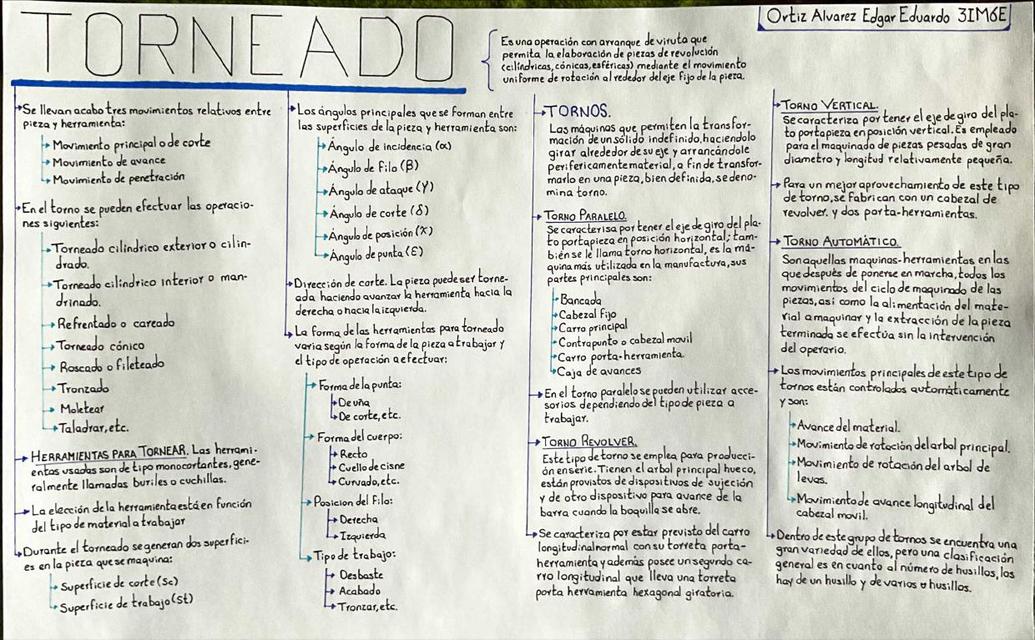 TORNEADO
Ortiz Alvarez Edgar Eduardo 3IM6E
Es una operación con arranque de viruta que
permita la elaboración de piezas de revolución
(cilíndricas, cónicas, esféricas) mediante el movimiento
uniforme de rotación al rededor del eje fijo de la pieza.
Se llevan acabo tres movimientos relativos entre
pieza y herramienta:
Movimiento principal o de corte
Movimiento de avance
Movimiento de penetración
En el torno se pueden efectuar las operacio-
nes siguientes:
Torneado cilíndrico exterior o cilin-
drado.
Torneado cilíndrico interior o man-
drinado.
Refrentado o careado
Torneado cónico
Roscado o fileteado
Tronzado
Moletear
Taladrar, etc.
HERRAMIENTAS PARA TORNEAR. Las herrami-
entas usadas son de tipo monocortantes, gene-
ralmente llamadas buriles o cuchillas.
La elección de la herramienta está en función
del tipo de material a trabajar
Durante el torneado se generan dos superfici-
es en la pieza que se maquina:
Superficie de corte (Sc)
Superficie de trabajo (St)
Los ángulos principales que se forman entre
las superficies de la pieza y herramienta son:
Ángulo de incidencia (α)
Ángulo de filo (β)
Ángulo de ataque (γ)
Ángulo de corte (δ)
Ángulo de posición (χ)
Ángulo de punta (ε)
Dirección de corte. La pieza puede ser torne-
ada haciendo avanzar la herramienta hacia la
derecha o hacia la izquierda.
La forma de las herramientas para torneado
varia según la forma de la pieza a trabajar y
el tipo de operación a efectuar:
Forma de la punta:
De uña
De corte, etc.
Forma del cuerpo:
Recto
Cuello de cisne
Curvado, etc.
Posicion del filo:
Derecha
Izquierda
Tipo de trabajo:
Desbaste
Acabado
Tronzar, etc.
TORNOS.
Las máquinas que permiten la transfor-
mación de un sólido indefinido, haciéndolo
girar alrededor de su eje y arrancándole
periféricamente material, a fin de transfor-
marlo en una pieza, bien definida, se deno-
mina torno.
TORNO PARALELO.
Se caracterisa por tener el eje de giro del pla-
to portapieza en posición horizontal; tam-
bién se le llama torno horizontal, es la má-
quina más utilizada en la manufactura, sus
partes principales son:
Bancada
Cabezal fijo
Carro principal
Contrapunto o cabezal movil
Carro porta-herramienta
Caja de avances
En el torno paralelo se pueden utilizar acce-
sorios dependiendo del tipo de pieza a
trabajar.
TORNO REVOLVER.
Este tipo de torno se emplea para producci-
ón en serie. Tienen el arbol principal hueco,
están provistos de dispositivos de sujeción
y de otro dispositivo para avance de la
barra cuando la boquilla se abre.
Se caracteriza por estar previsto del carro
longitudinal normal con su torreta porta-
herramienta y además posee un segundo ca-
rro longitudinal que lleva una torreta
porta herramienta hexagonal giratoria.
TORNO VERTICAL.
Se caracteriza por tener el eje de giro del pla-
to portapieza en posición vertical. Es empleado
para el maquinado de piezas pesadas de gran
diametro y longitud relativamente pequeña.
Para un mejor aprovechamiento de este tipo
de torno, se fabrican con un cabezal de
revolver. y dos porta-herramientas.
TORNO AUTOMÁTICO.
Son aquellas maquinas-herramientas en las
que después de ponerse en marcha, todos los
movimientos del ciclo de maquinado de las
piezas, así como la alimentación del mate-
rial a maquinar y la extracción de la pieza
terminada se efectúa sin la intervención
del operario.
Los movimientos principales de este tipo de
tornos están controlados automáticamente
y son:
Avance del material.
Movimiento de rotación del arbol principal.
Movimiento de rotación del arbol de
levas.
Movimiento de avance longitudinal del
cabezal movil.
Dentro de este grupo de tornos se encuentra una
gran variedad de ellos, pero una clasificación
general es en cuanto al número de husillos, los
hay de un husillo y de varios o husillos.